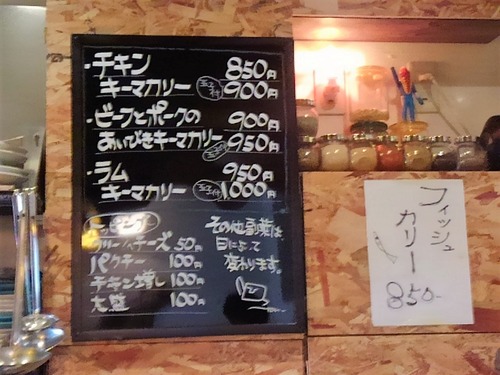 ・チキン 850円
キーマカリー 玉子付 900円
・ビーフとポークの 900円
あいびきキーマカリー 玉子付 950円
・ラム 950円
キーマカリー 玉子付 1,000円
トッピング
クリームチーズ 50円
パクチー 100円
チキン増し 100円
大盛 100円
その他副菜は
日によって
変わります。
フィッシュ
カリー
850-